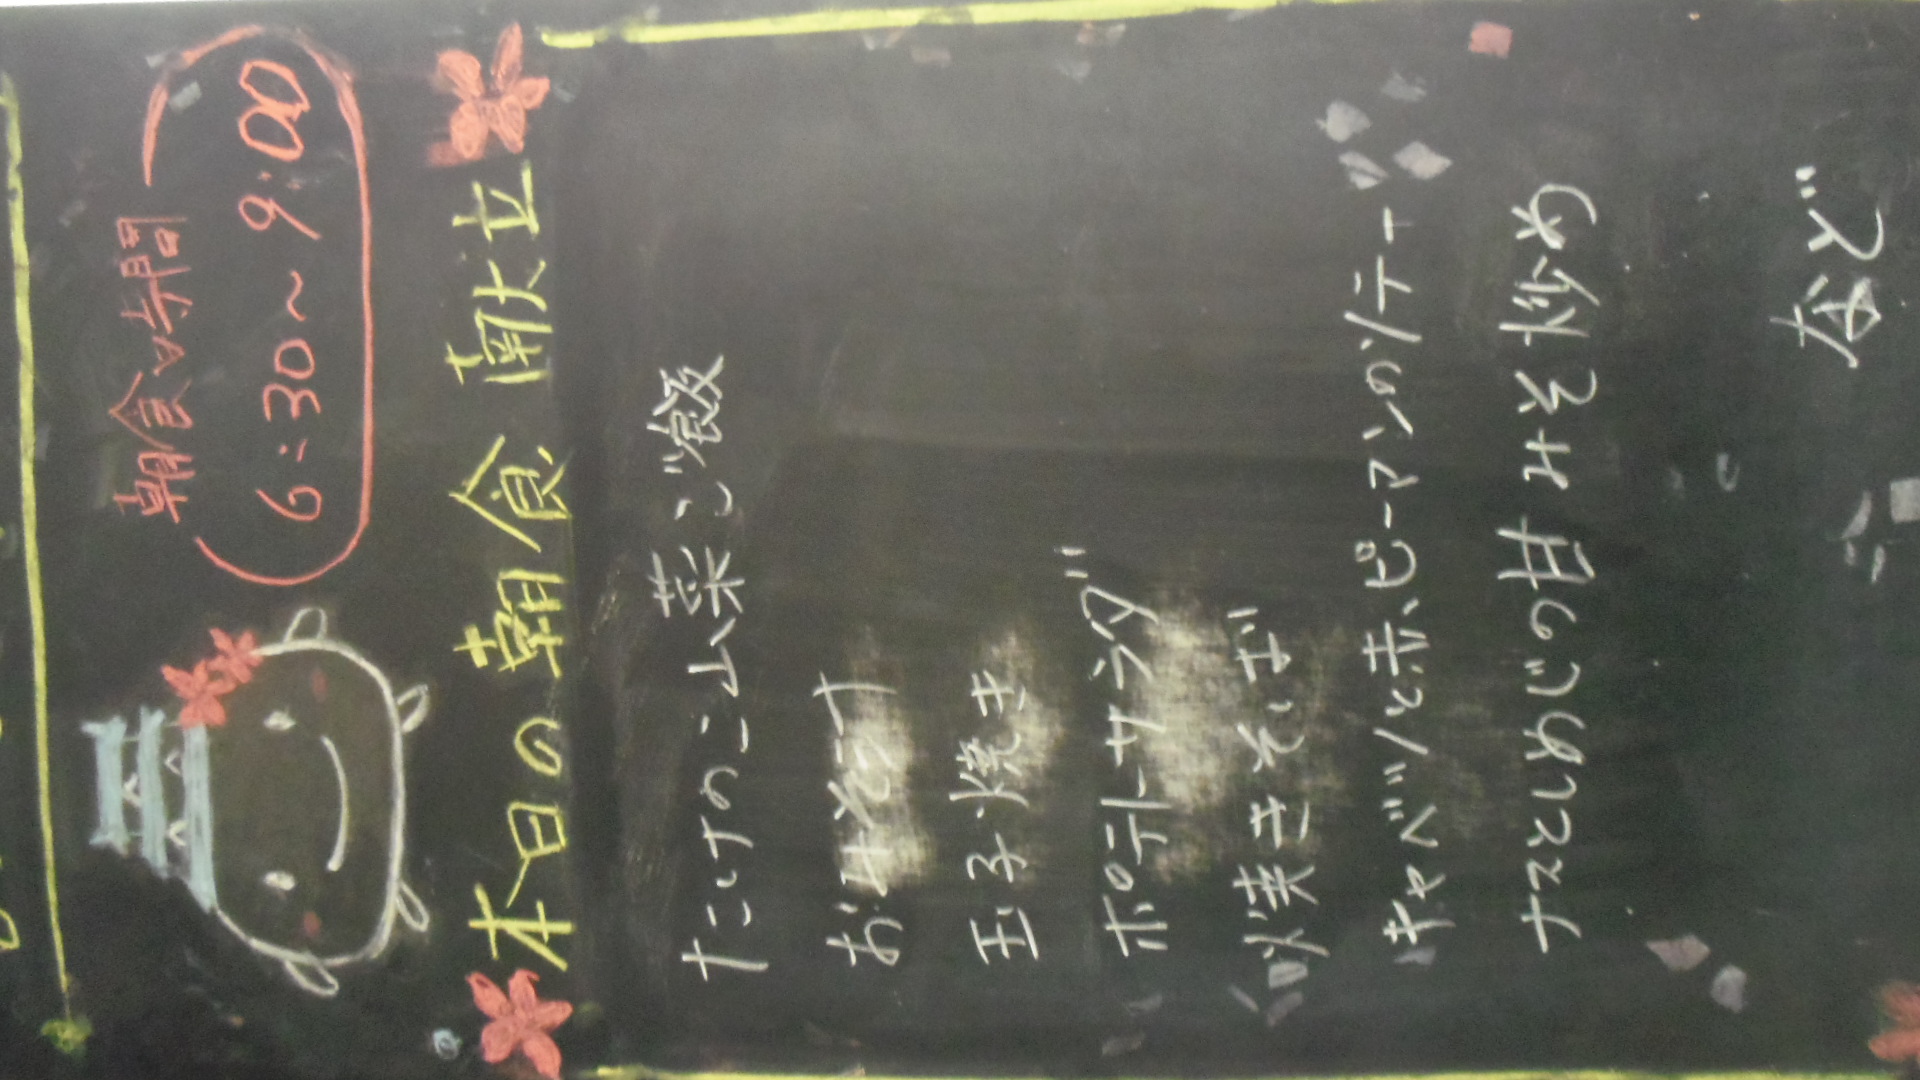 朝食時間
6:30～9:00
本日の朝食献立
たけのこ山菜ご飯
おみそ汁
玉子焼き
ポテトサラダ
焼きそば
キャベツと赤ピーマンのソテー
ナスとしめじの甘みそ炒め
など